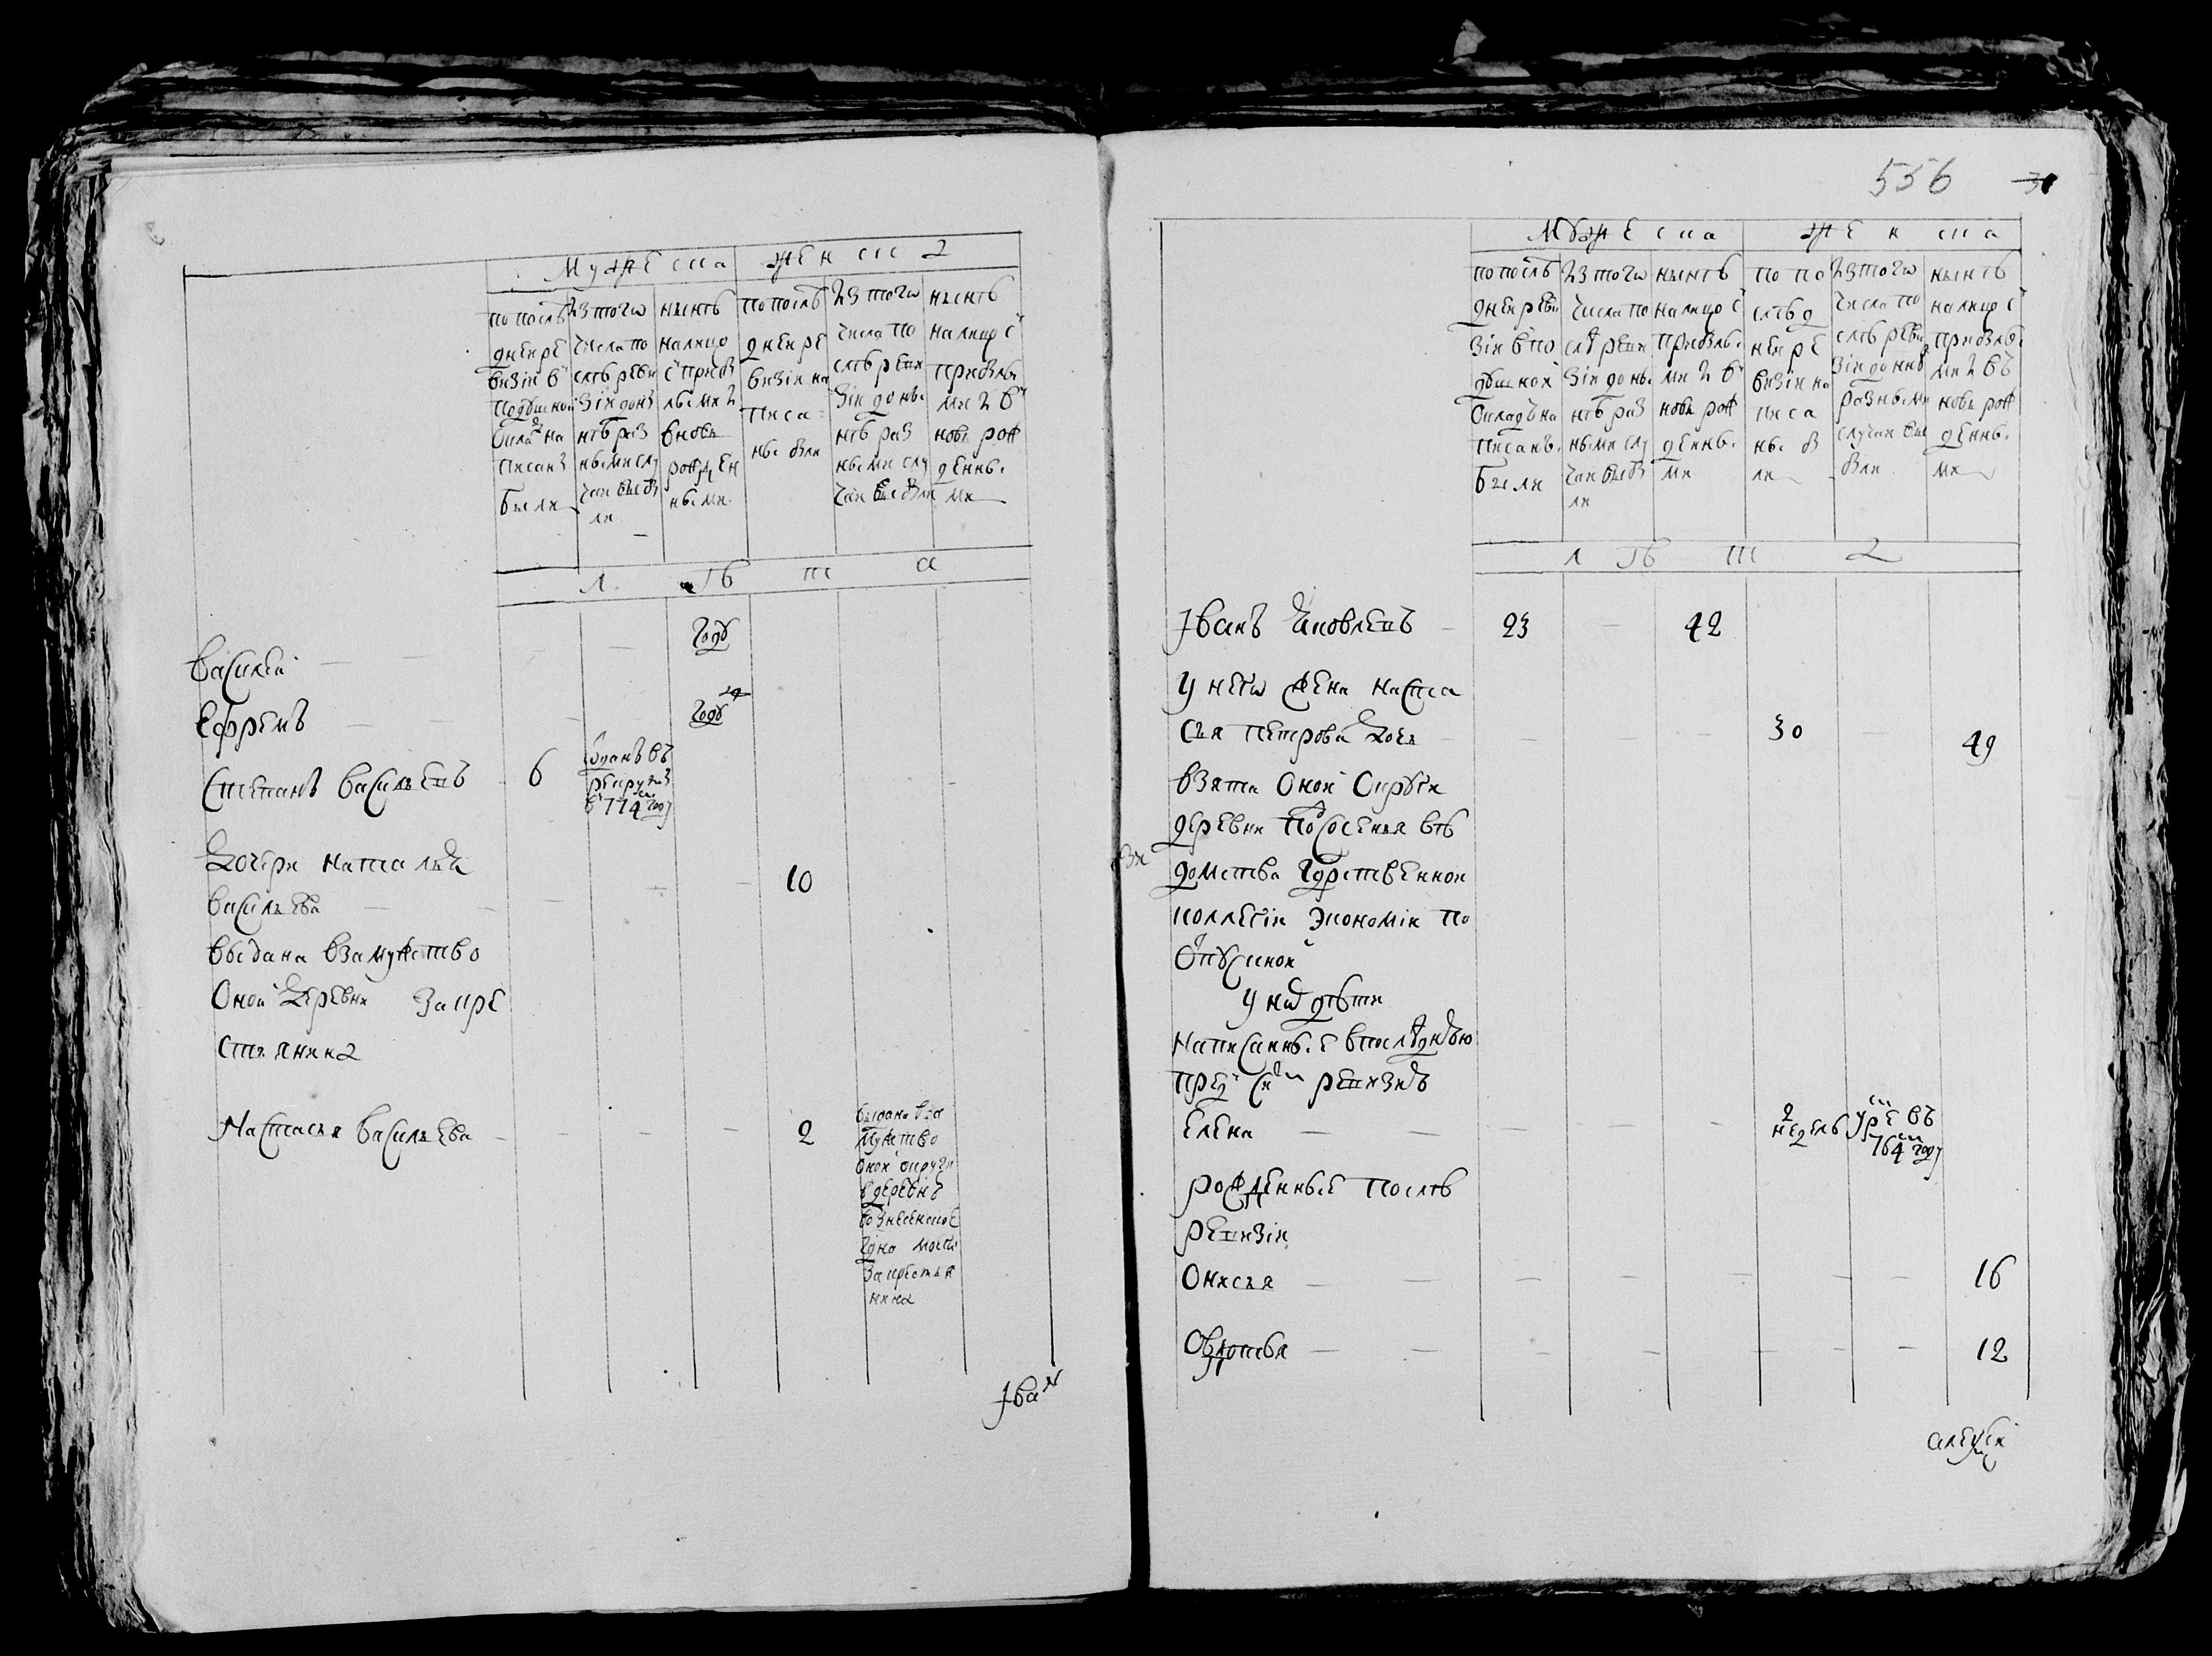 556
Мужеска женска
по послѣ
днеи ре
визіи в
подушнои
окладъ на
писанъ
были
изтого
числа по
слѣ реви
зіи донъ
нѣ раз
ными слу
чаи выбы
ли
нынѣ
налицо
с прибы
лыми и
вновь
рожден
ными
по послѣ
днеи ре
визіи на
писа
ны были
изтого
числа по
слѣ реви
зіи доны
нѣ раз
ными слу
чаи выбыли
нынѣ
налицо с
прибылы
ми и в
новь рож
денны
ми
лѣта
Василеи — — году
Ефремъ — — году
Степанъ Васильевъ 6 отданъ въ
рекруты
в 774 году
Дочери Наталья
Васильева — — 10
выдана взамужство
Онои деревни за кре
стьянина
Настасья Васильева 2 выдана вза
мужство
онои округи
в деревнѣ
вознесенское
за крестья
нина
Іван
Мужеска женска
по послѣ
днеи реви
зіи в по
душнои
окладъ на
писаны
были
изтого
числа по
слѣ реви
зіи доны
нѣ раз
ными слу
чаи выбы
ли
нынѣ
налицо с
прибылы
ми и в
новь рож
денны
ми
по по
слѣд
неи ре
визіи на
писа
ны бы
ли
изтого
числа по
слѣ реви
зіи донынѣ
разными
случаи вы
были
нынѣ
налицо с
прибылы
ми и въ
новь рож
денны
ми
лѣта
Іванъ Яковлевъ — 23 — 42
У него жена Наста
сья Петрова дочь — 30 — 49
взята Онои Округи
деревни вѣ
домства Гдрственнои
коллегіи Экономіи по
Отпускнои
У нихъ дѣти
Написанные в послѣднюю
пред симъ ревизію
Елена — 2
недель Умре въ
764 году
рожденные послѣ
ревизіи
Онисья — 16
Овдотья — 12
Алексеи